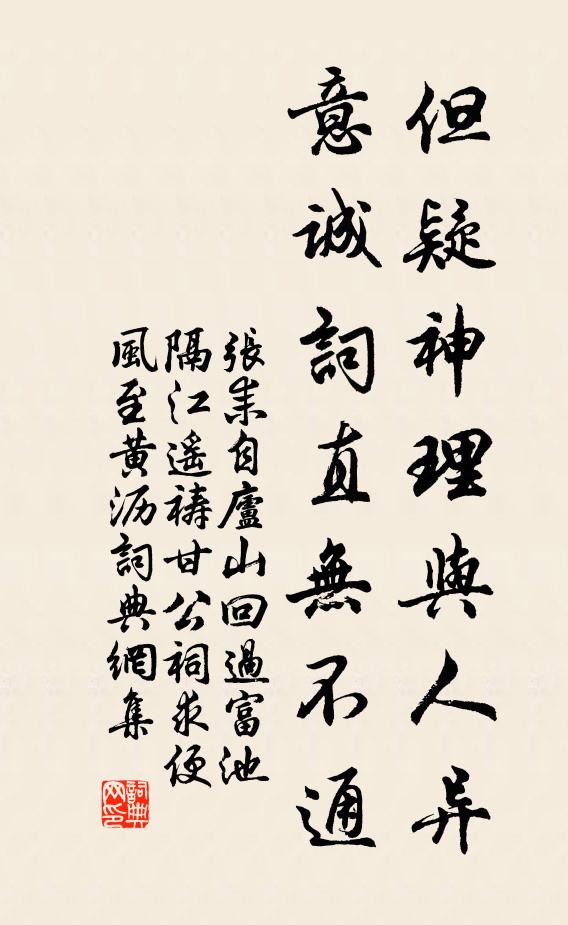 但疑神理與人异
意誠詞直無不通
張耒自廬山回過富池
隔江遥禱甘公祠求便
風至黄沥詞典網集
詞典网印